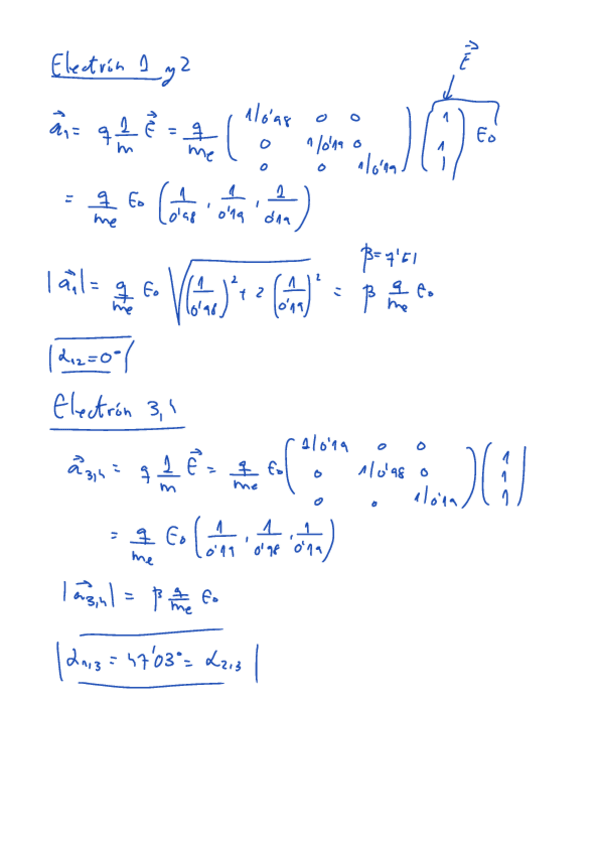 Electrón 1 y 2
E⃗
a⃗₁ = q 1/m E⃗ = q/me ( 1/0'98 0 0 ; 0 1/0'19 0 ; 0 0 1/0'19 ) ( 1 ; 1 ; 1 ) E₀
= q/me E₀ ( 1/0'98 , 1/0'19 , 1/0'19 )
β = 7'51
|a⃗₁| = q/me E₀ √( (1/0'98)² + 2 (1/0'19)² ) = β q/me E₀
α₁₂ = 0°
Electrón 3,4
a⃗₃,₄ = q 1/m E⃗ = q/me E₀ ( 1/0'19 0 0 ; 0 1/0'98 0 ; 0 0 1/0'19 ) ( 1 ; 1 ; 1 )
= q/me E₀ ( 1/0'19 , 1/0'98 , 1/0'19 )
|a⃗₃,₄| = β q/me E₀
α₁,₃ = 47'03° = α₂,₃